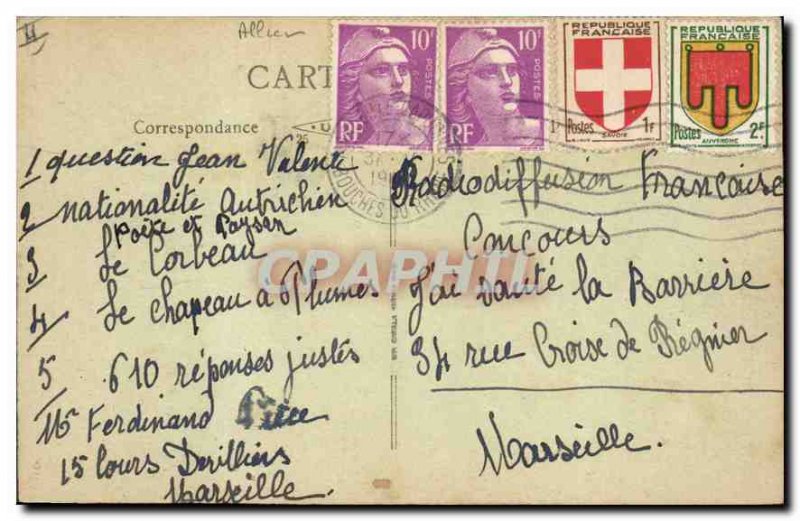 Allier
CART
Correspondance
1 question Jean Valenti
2 nationalité Autrichien
Poète et Paysan
3 Le Corbeau
4 Le chapeau à Plumes
5 610 réponses justes
Mr Ferdinand
15 Cours Devilliers
Marseille.
10F
POSTES
RF
10F
POSTES
RF
REPUBLIQUE FRANÇAISE
1F
Postes
SAVOIE
REPUBLIQUE FRANÇAISE
Postes
2F
AUVERGNE
BOUCHES DU RHONE
Radiodiffusion Française
Concours
J'ai sauté la Barrière
34 rue Croise de Régnier
Marseille.
CPAPHIL